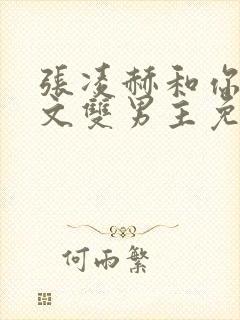 張凌赫和你
文雙男主免
何雨繁